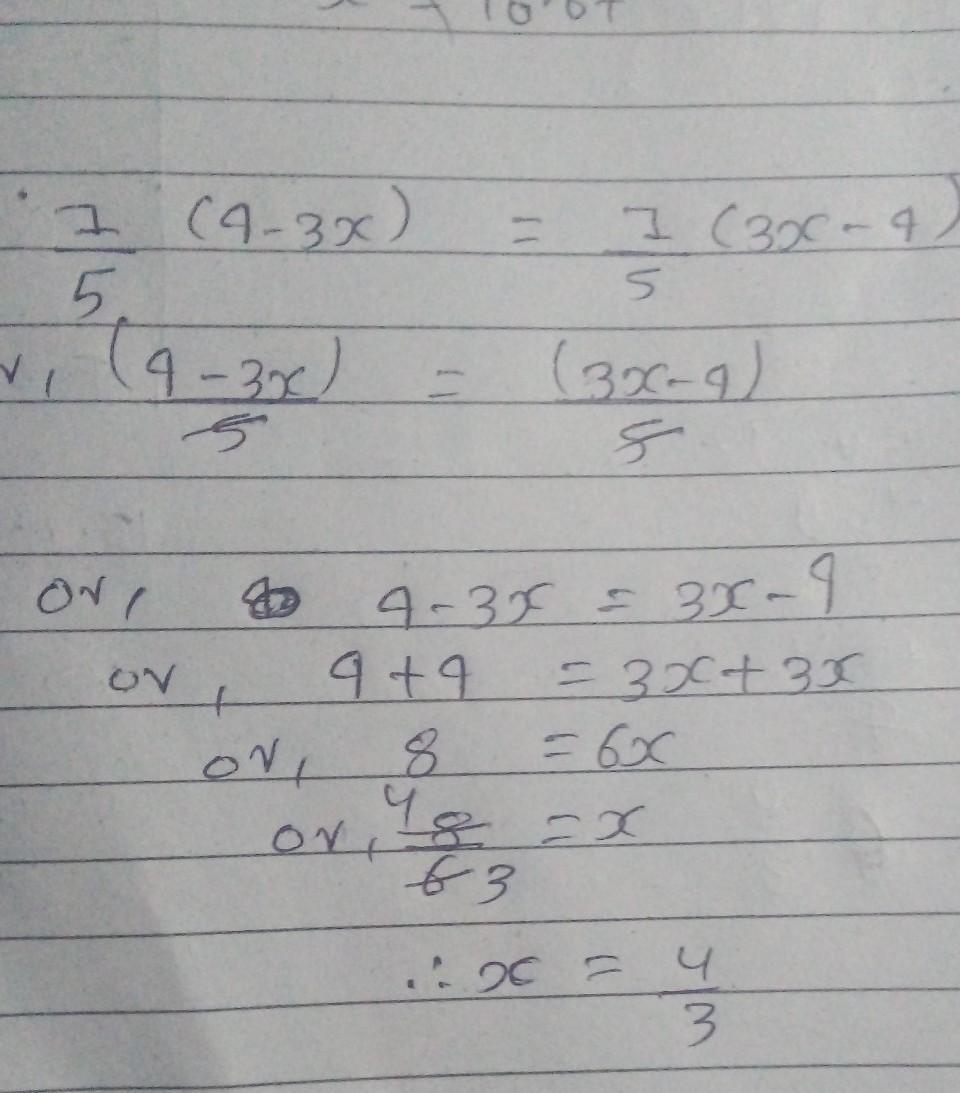 1/5 (4-3x) = 1/5 (3x-4)
r, (4-3x)/5 = (3x-4)/5
or, 4-3x = 3x-4
or, 4+4 = 3x+3x
or, 8 = 6x
or, 4 8/6 3 = x
∴ x = 4/3